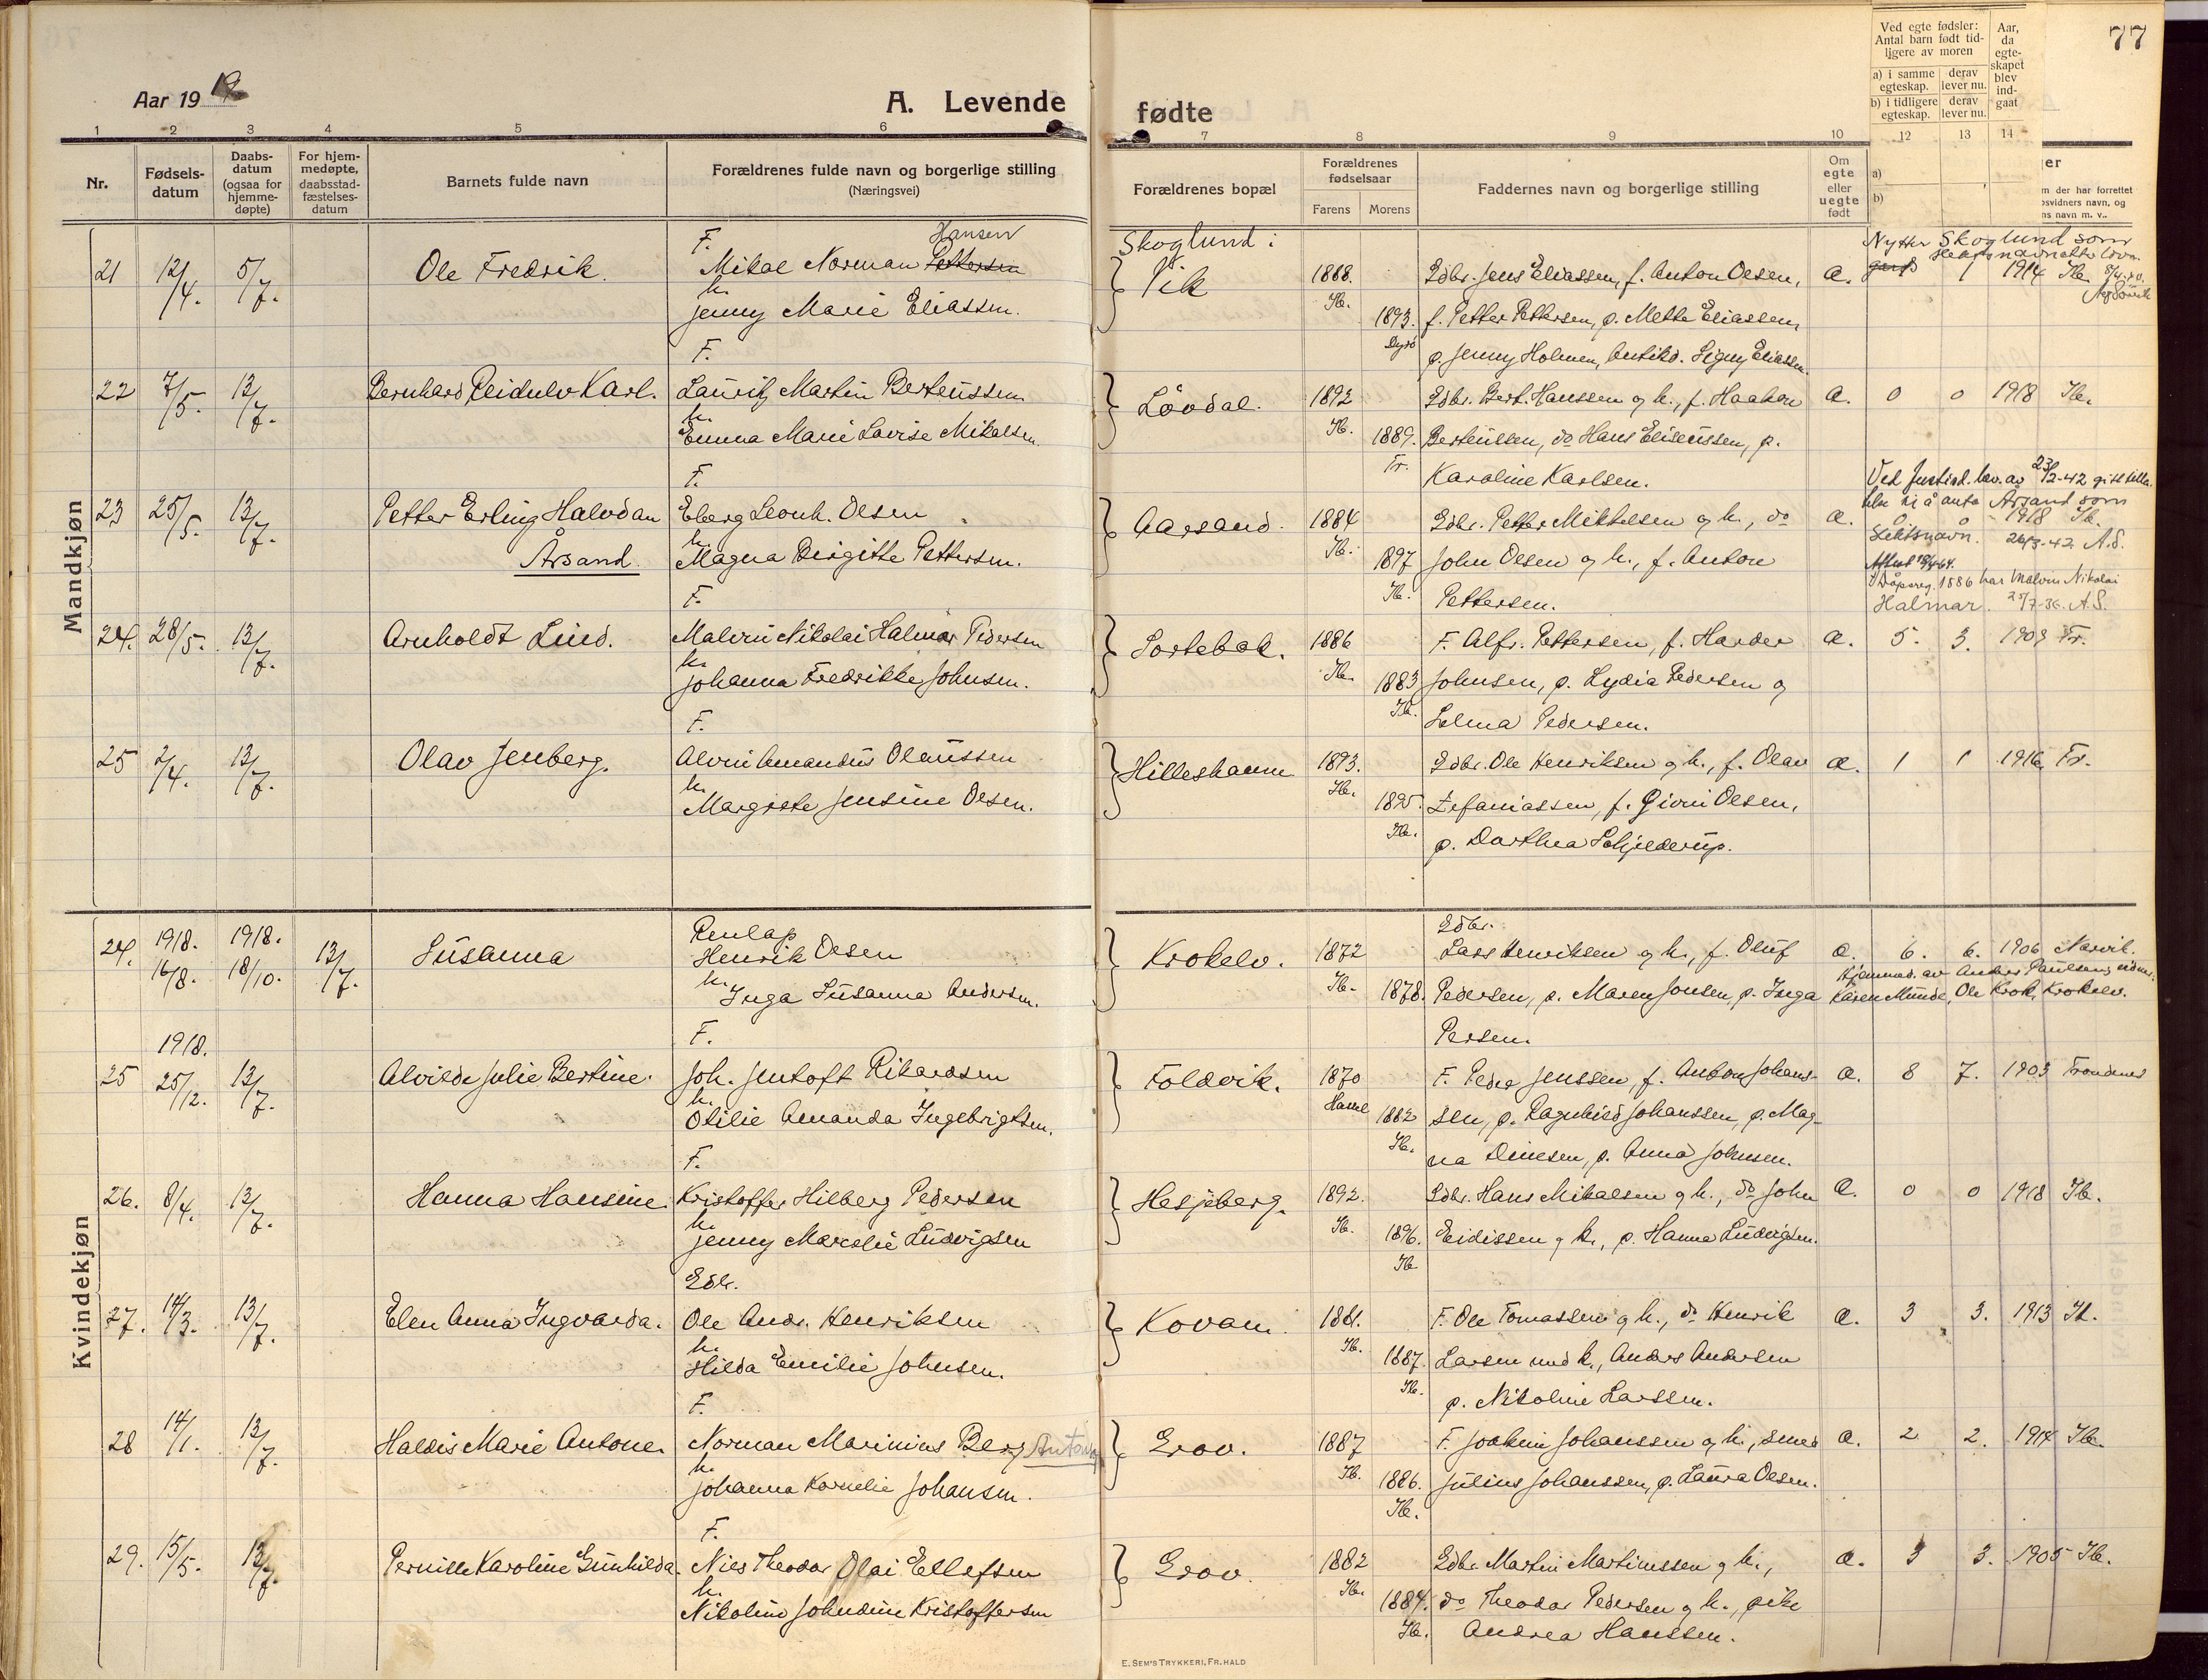 Aar 1919
A. Levende
fødte
77
1 2 3 4 5 6 7 8 9 10 12 13 14
Nr.
Fødsels-
datum
Daabs-
datum
(ogsaa for
hjemme-
døpte)
For hjem-
medøpte,
daabsstad-
fæstelses-
datum
Barnets fulde navn
Forældrenes fulde navn og borgerlige stilling
(Næringsvei)
Forældrenes bopæl
Forældrenes
fødselsaar
Farens Morens
Faddernes navn og borgerlige stilling
Om
egte
eller
uegte
født
Ved egte fødsler:
Antal barn født tid-
ligere av moren
a) i samme
egteskap.
derav
lever nu.
b) i tidligere
egteskap.
derav
lever nu.
Aar,
da
egte-
skapet
blev
ind-
gaat
a)
b)
er
m der har forrettet
svidners navn, og
ns navn m. v..
Mandkjøn
21 12/4. 5/7. Ole Fredrik.
F. Hansen
Mikal Norman Pettersen
h.
Jenny Marie Eliassen.
Skoglund:
Vik 1888. Ib. 1893. Dyrö
Gdbr. Jens Eliassen, f. Anton Olsen,
f. Petter Pettersen, p. Mette Eliassen,
p. Jenny Holmen, Antikd. Signy Eliassen.
a. 1 1914 Ib.
Nytter Skoglund som
slektsnavn etter lovn.
22 7/5. 13/7. Bernhard Reidulv Karl.
F.
Lauritz Martin Berteussen
h.
Emma Marie Lovise Mikalsen.
Lövdal. 1892 Ib. 1889. Tr.
Gdbr. Bert. Hanssen og h., f. Haakon
Berteussen, do Hans Eliseussen, p.
Karoline Karlsen.
a. 0 0 1918 Ib.
23 25/5. 13/7. Petter Erling Halvdan
Årsand.
F.
Eberg Leonh. Olsen
h.
Magna Birgitte Pettersen.
Aarsand. 1884 Ib. 1897 Ib.
Gdbr. Petter Mikkelsen og h., do
John Olsen og h., f. Anton
Pettersen.
a. 0 0 1918 Ib.
Ved Justisd. bev. av 23/2-42 gitt tilla-
telse til å anta Årsand som
Slektsnavn. 26/3-42 A.S.
24. 28/5. 13/7. Arnholdt Lind.
F.
Malvin Nikolai Halmar Pedersen
h.
Johanna Fredrikke Johnsen.
Sortebak. 1886 Ib. 1883 Ib.
F. Alfr. Pettersen, f. Harder
Johnsen, p. Lydia Pedersen og
Selma Pedersen.
a. 5. 3. 1909 Tr.
I Dåpsreg. 1886 har Malvin Nikolai
Halmar. 25/7-36. A.S.
25 2/4. 13/7. Olav Jenberg.
F.
Alvin Amandus Olaussen
h.
Margrete Jensine Olsen.
Hilleshamn 1893. Ib. 1895. Ib.
Gdbr. Ole Henriksen og h., f. Olav
Zefaniassen, f. Gioni Olsen,
p. Dorthea Schjelderup.
a. 1 1 1916 Tr.
Kvindekjøn
24. 1918. 16/8. 1918. 18/10. 13/7. Susanna
Renlap
Henrik Olsen
h.
Inga Susanna Andersen.
Krokelv. 1872 Ib. 1878.
Gdbr.
Lars Henriksen og h., f. Oluf
Pedersen, p. Maren Jonsen, p. Inga
Persen.
a. 6. 6. 1906 Narvik.
Hjemmed. av Anders Paulsen, vidner
Karen Munde, Ole Krok, Krokelv.
25 1918. 25/12. 13/7. Alvilde Julie Bertine.
F.
Joh. Jentoft Rikardsen
h.
Otilie Amanda Ingebrigtsen.
Foldvik. 1870 Hassel 1882 Ib.
F. Peder Jenssen, f. Anton Johans-
sen, p. Ragnhild Johanssen, p. Mag-
na Dinesen, p. Anna Johnsen.
a. 8 7. 1903 Trondenes
26. 8/4. 13/7. Hanna Hansine.
F.
Kristoffer Hilberg Pedersen
h.
Jenny Marselie Ludvigsen
Hesjeberg. 1892. Ib. 1896. Ib.
Gdbr. Hans Mikalsen og h., do John
Eidissen og h., p. Hanna Ludvigsen.
a. 0 0 1918 Ib.
27. 14/3. 13/7. Elen Anna Ingvarda.
Gdbr.
Ole Andr. Henriksen
h.
Hilda Emilie Johnsen.
Kovan. 1881. Ib. 1887. Ib.
F. Ole Tomassen og h., do Henrik
Larsen med h., Anders Andersen
p. Nikoline Larssen.
a. 3 3. 1913 Ib.
28 14/1. 13/7. Haldis Marie Antone.
F.
Norman Marinius Berg Antonsen
h.
Johanna Kornelie Johansen.
Grov. 1887 Ib. 1886. Ib.
F. Joakim Johanssen og h., smed
Julius Johanssen, p. Laura Olsen.
a. 2 2. 1914 Ib.
29. 15/5. 13/7. Pernille Karoline Gunhilda.
F.
Nils Theodor Olai Ellefsen
h.
Nikoline Johndine Kristoffersen
Grov. 1882 Ib. 1884. Ib.
Gdbr. Martin Martinussen og h.,
do Theodor Pedersen og h., pike
Andrea Hanssen.
a. 3 3. 1905 Ib.
E. SEM'S TRYKKERI, FR.HALD